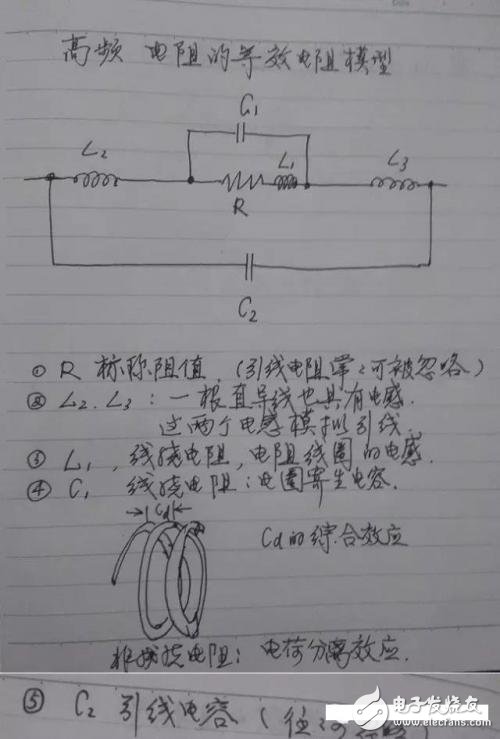 高频 电阻的等效电阻模型
C₁
L₂
L₁
L₃
R
C₂
① R 标称阻值.(引线电阻常常可被忽略)
② L₂.L₃:一根直导线也具有电感.
这两个电感模拟引线.
③ L₁,线绕电阻,电阻线圈的电感.
④ C₁ 线绕电阻:电圈寄生电容.
Cd
Cd的综合效应
非线绕电阻:电荷分离效应.
⑤ C₂ 引线电容(往
电子发烧友
www.elecfans.com